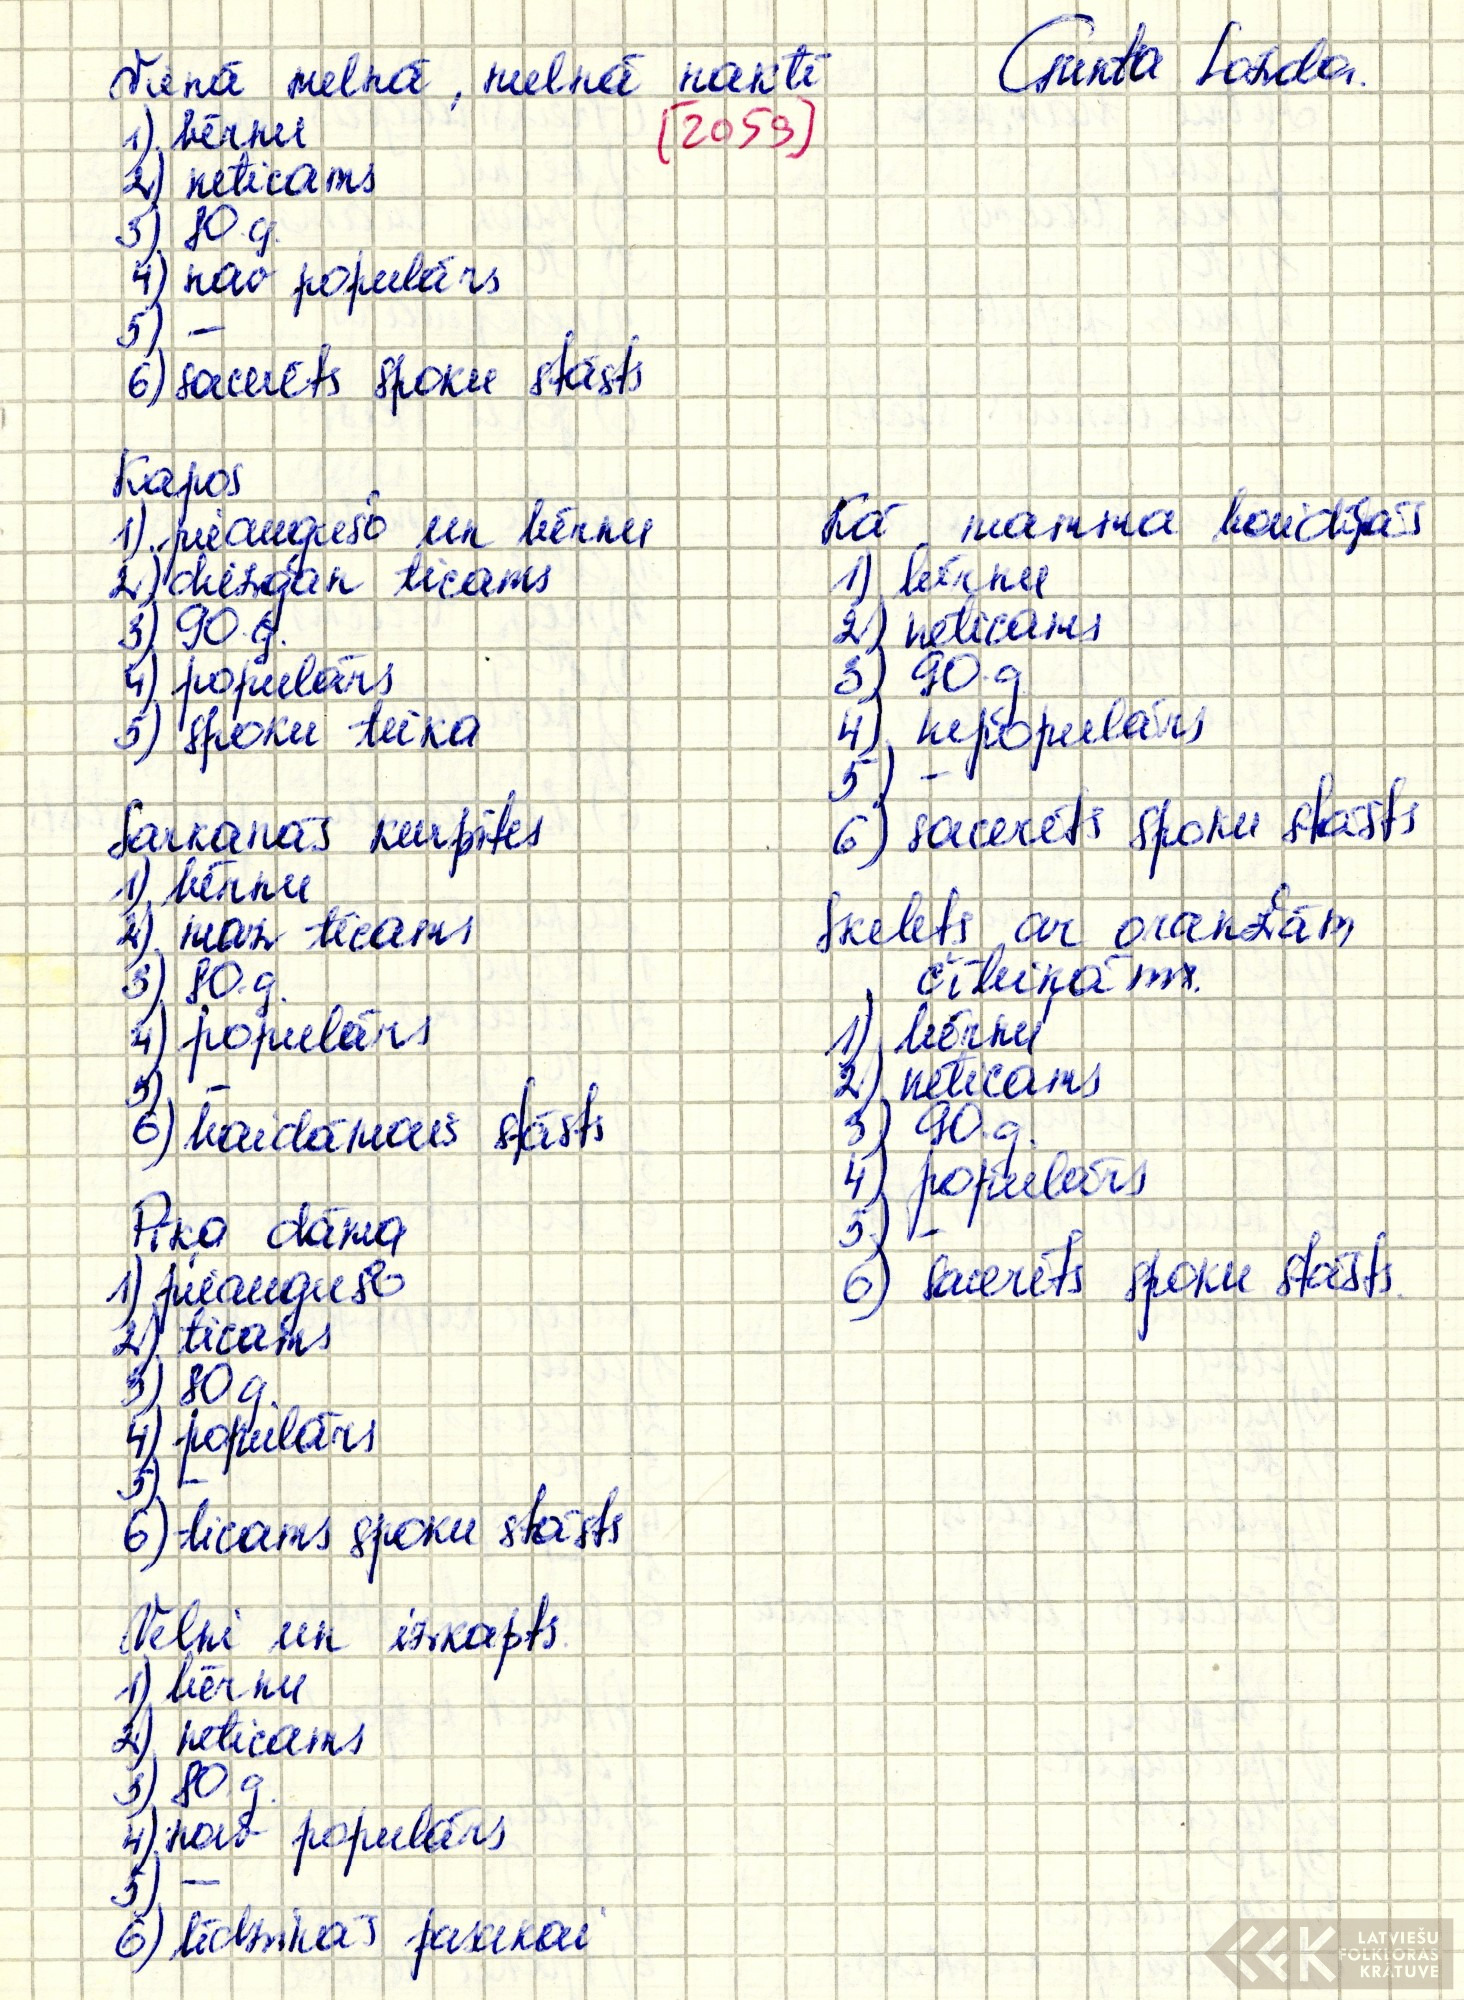 Vienā melnā, melnā naktī
Gunta Lazda.
[2059]
1) bērnu
2) neticams
3) 80.g.
4) nav populārs
5) –
6) sacerēts spoku stāsts
Kapos
1) pieaugušo un bērnu
2) diezgan ticams
3) 90.g.
4) populārs
5) spoku teika
Sarkanās kurpītes
1) bērnu
2) maz ticams
3) 80.g.
4) populārs
5) –
6) baidāmais stāsts
Pīķa dāma
1) pieaugušo
2) ticams
3) 80.g.
4) populārs
5) –
6) ticams spoku stāsts
Velni un izkapts.
1) bērnu
2) neticams
3) 80.g.
4) nav populārs
5) –
6) līdzinās pasakai
Kā mamma baidījās
1) bērnu
2) neticams
3) 90.g.
4) nepopulārs
5) –
6) sacerēts spoku stāsts
Skelets ar oranžām
cībiņām.
1) bērnu
2) neticams
3) 90.g.
4) populārs
5) –
6) sacerēts spoku stāsts.
LATVIEŠU
FOLKLORAS
KRĀTUVE